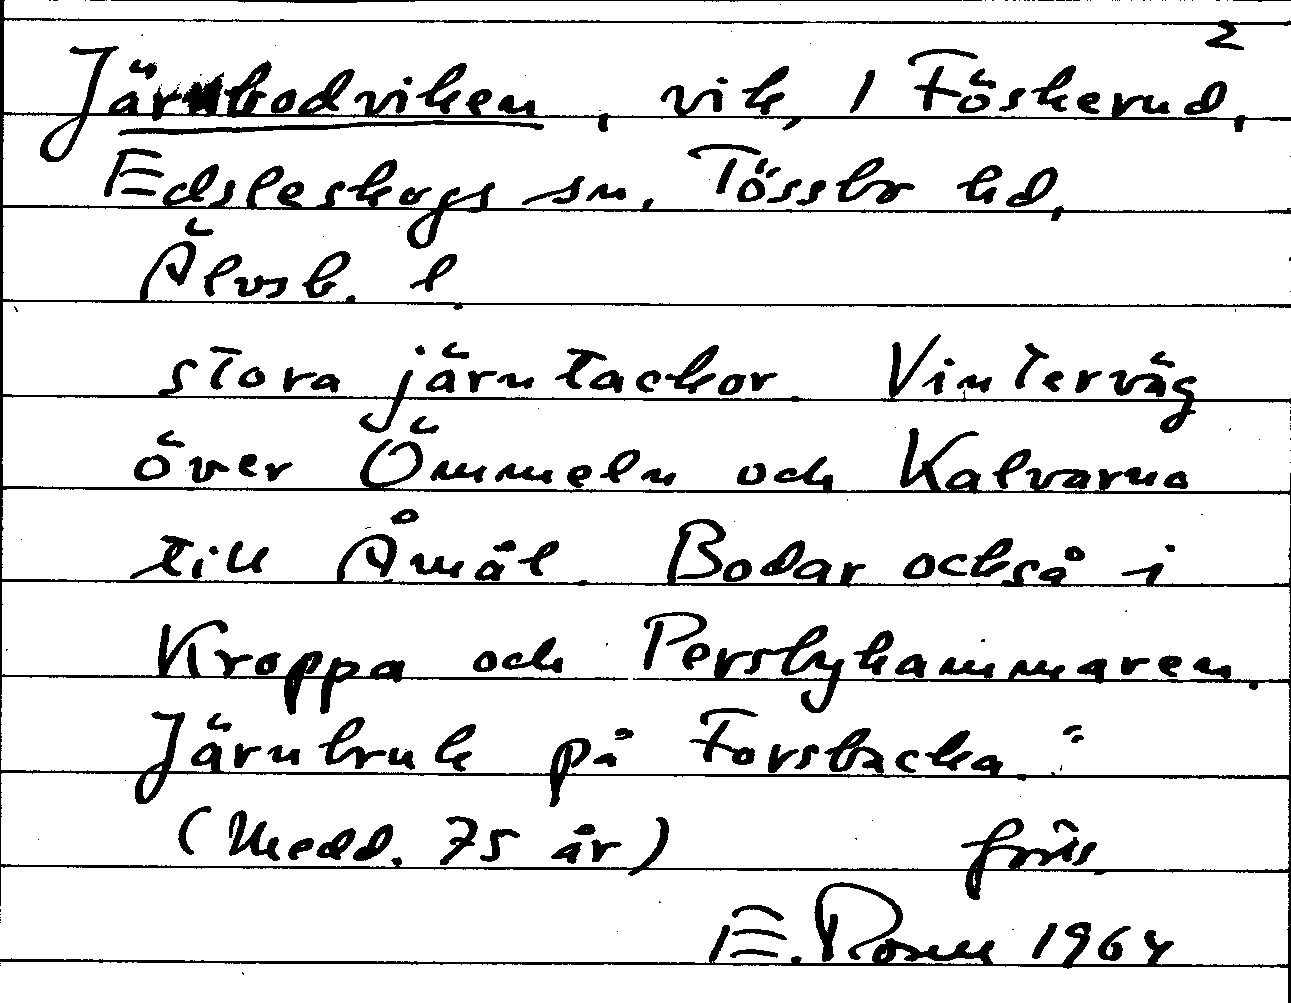 2
Järnbodviken, vik, 1 Föskerud,
Edsleskogs sn. Tössbo hd,
Älvsb. l.
stora järntackor. Vinterväg
över Ömmeln och Kalvarna
till Åmål. Bodar också i
Kroppa och Persbyhammaren.
Järnbruk på Forsbacka."
(Medd. 75 år)
E. 1964